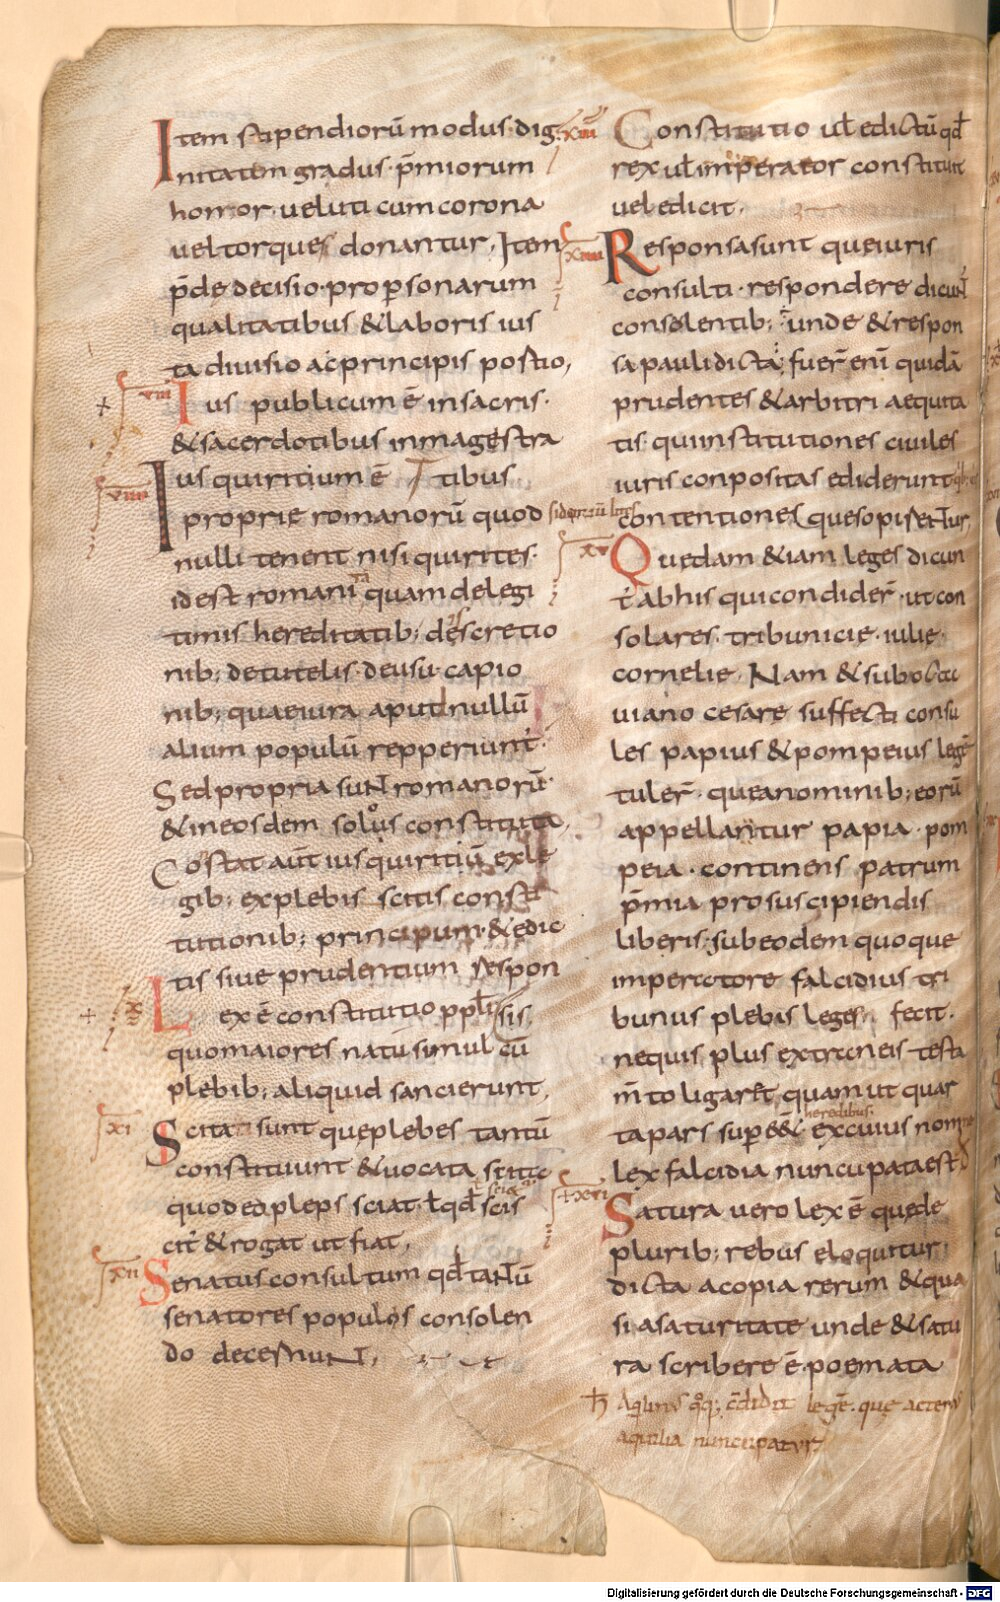 Item stipendiorū modus· dig
nitatum gradus· p̄miorum
honor· ueluti cum corona
uel torques donantur, Item
p̄de decisio· pro p̱sonarum
qualitatibus & laboris ius
ta diuisio ac principis postio,
viii
Ius publicum ē in sacris·
& sacerdotibus in magestra
tibus
viiii
Ius quiritium ē
proprie romanorū quod
nulli tenent nisi quirites·
id est romani quam de legi
timis hereditatib; descretio
nib; de tutelis· de usu· capio
nib; quae iura apud nullū
alium populū repperiunt̄·
Sed propria suNt romanorū·
& in eosdem solus constituta,
Costat aūt ius quiritiū ex le
gib; ex plebis scitis consti
tutionib; principum· & edic
tis siue prudentium respon
sis
x
Lex ē constitutio ppl̄i
quo maiores natu simul cū
plebib; aliquid sancierunt,
xi
Scita sunt que plebes tantū
constituunt & uocata scita
quod ea pleps sciat· ł qd̄ scis
cit̄ & rogat ut fiat,
xii
Senatus consultum qd̄ taNtū
senatores populos consolen
do decernuNt,
xiii
Constitutio uł edictū qd̄
rex uł imperator constituit
uel edicit,
xiiii
Responsa sunt que iuris
consulti· respondere dicuNt̄
consolentib; unde & respon
sa pauli dicta, fuer̄ eni quidā
prudentes & arbitri aequita
tis· qui institutiones ciuiles
iuris conpositas ediderunt
contentiones que sopiseNtur,
xv
Quedam &iam leges dicun
t̄ ab his qui condider̄· ut con
solares· tribunicie· iulie·
cornelie, Nam & sub octa
uiano cesare suffecti consu
les papius & pompeius legē
tuler̄· que a nominib; eorū
appellantur papia· pom
peia· continens patrum
p̄mia pro suscipiendis
liberis· sub eodem quoque
imperatore falcidius tri
bunus plebis leges fecit·
ne quis plus extraneis testa
m̄to ligaret, quam ut quar
heredibus·
ta pars sup̱ee& ex cuius nom
lex falcidia nuncupata est
xvi
Satura uero lex ē que de
plurib; rebus eloquitur,
dicta a copia rerum & qua
si a saturitate unde & satu
ra scribere ē· poemata
aquilia nuncupatur,
Digitalisierung gefördert durch die Deutsche Forschungsgemeinschaft - DFG